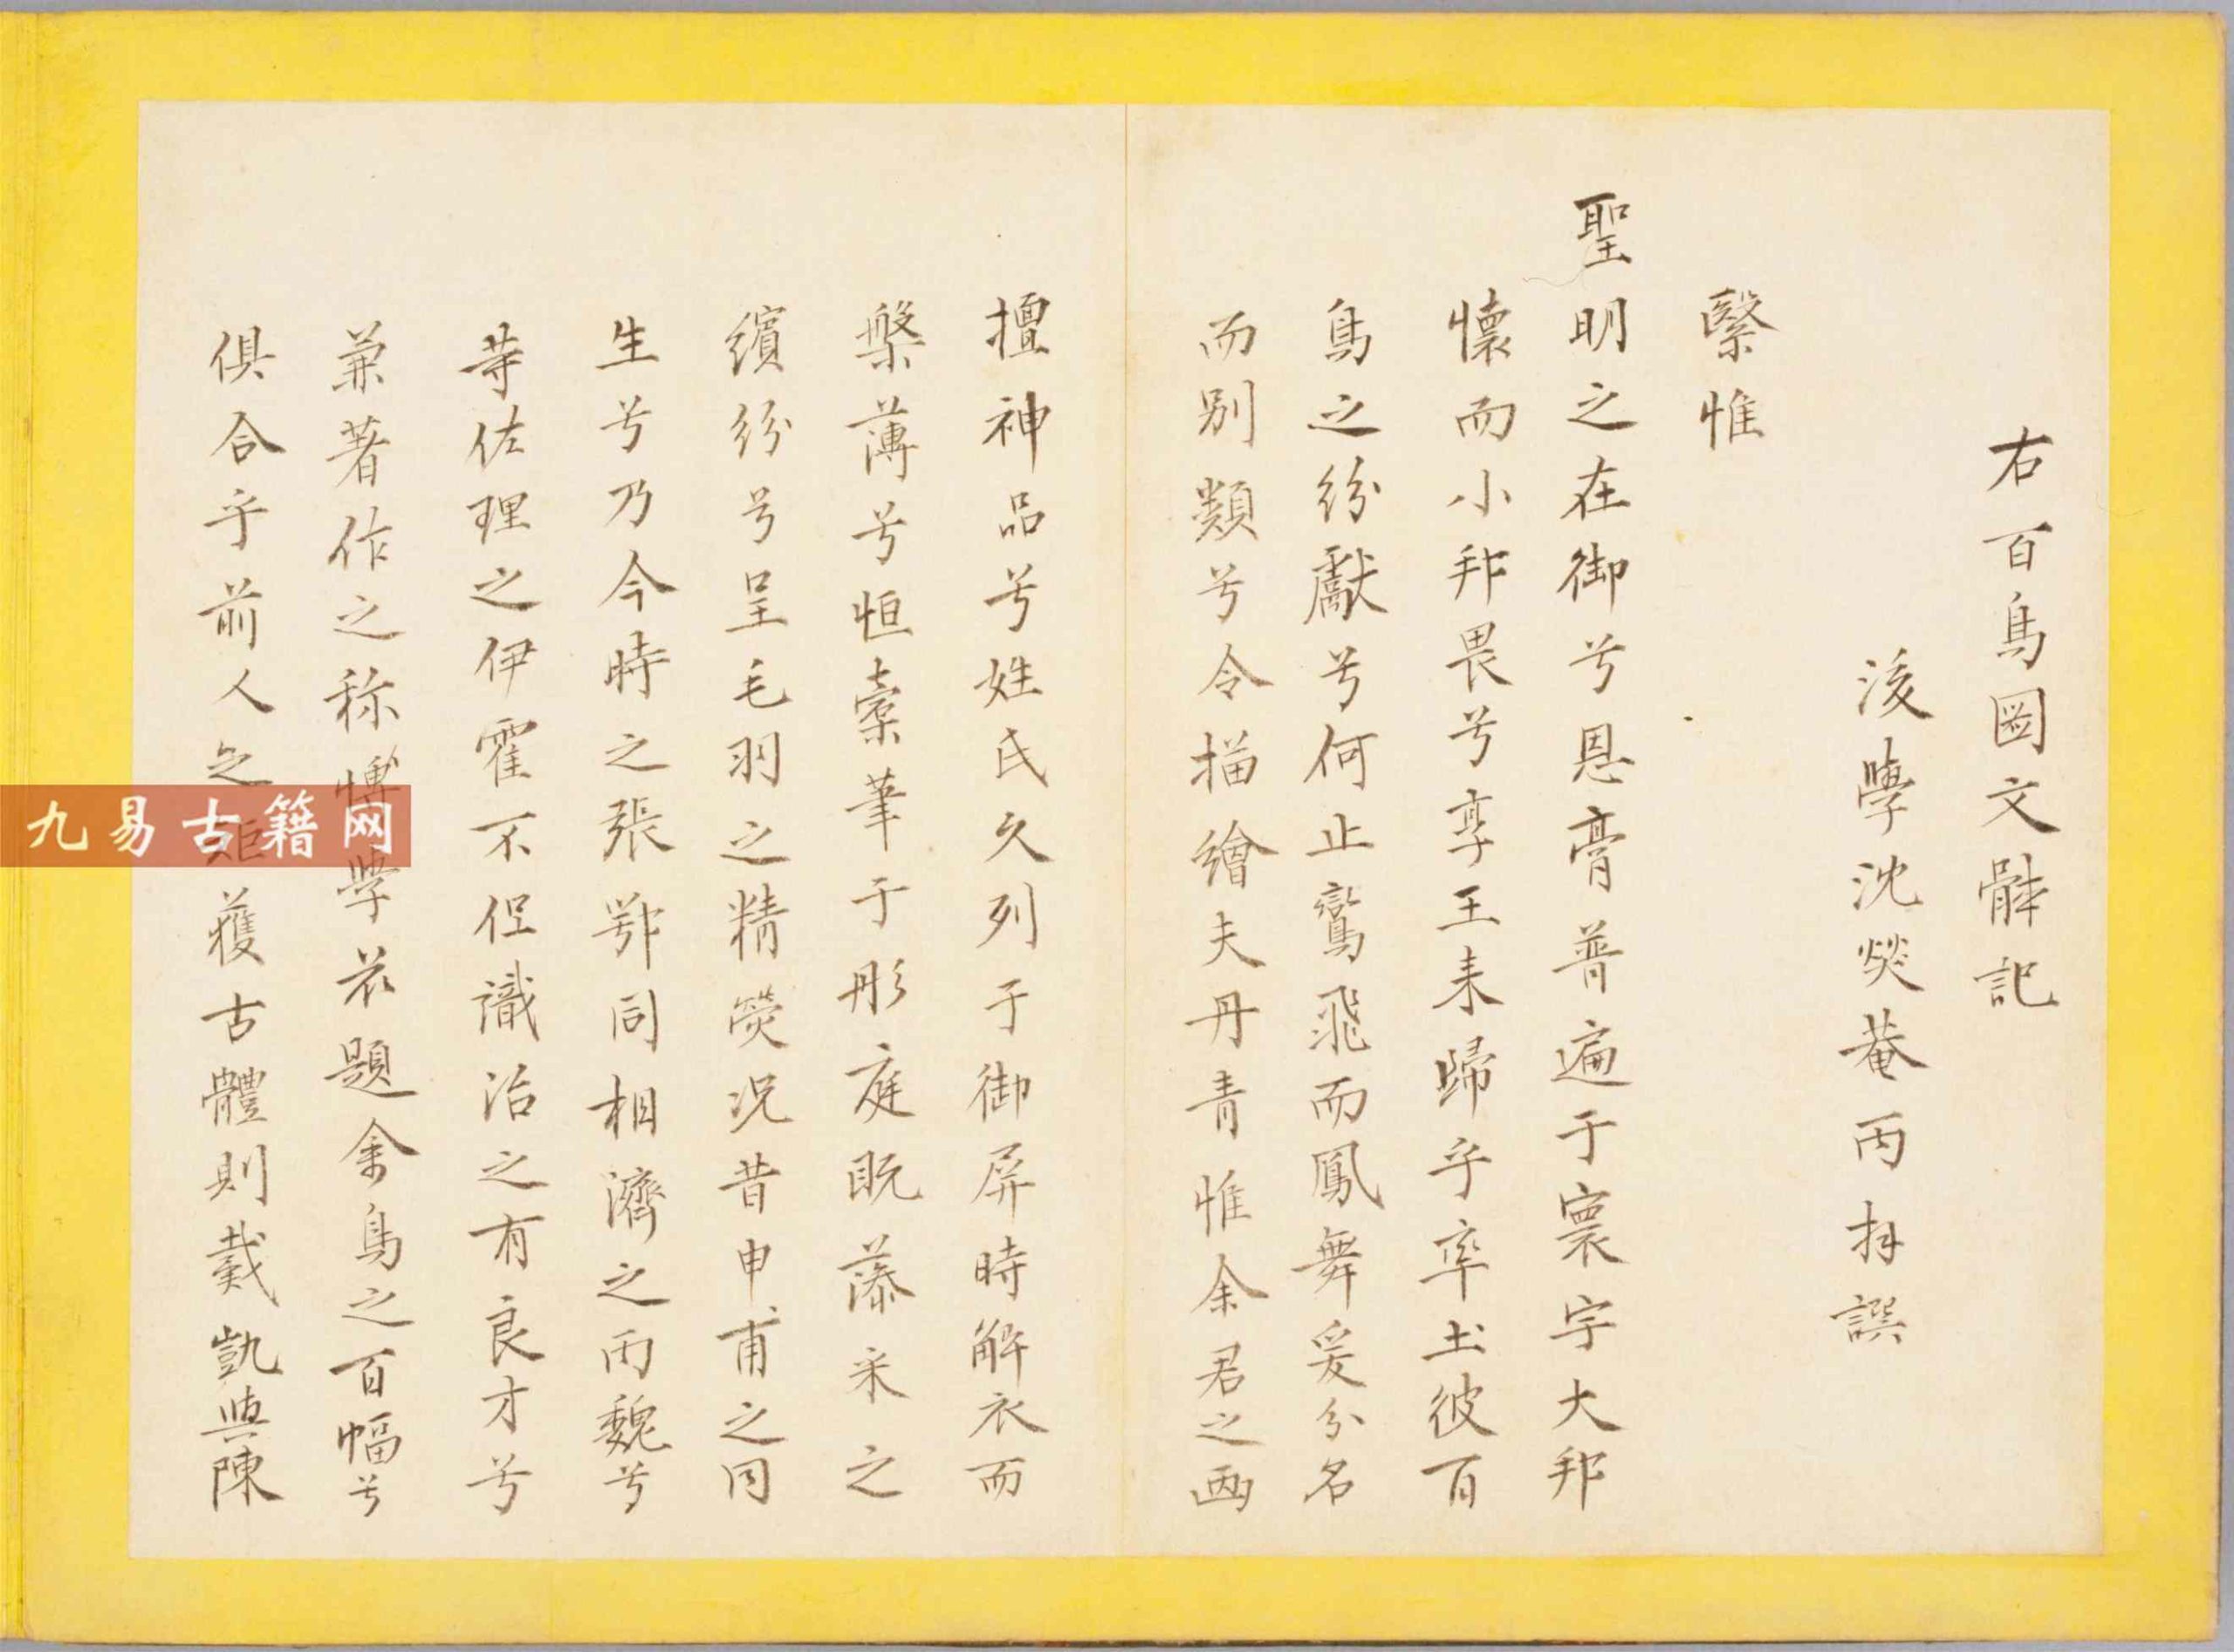 右百鳥圖文辭記
後學沈燮菴丙拜譔
繄惟
聖明之在御兮恩膏普遍于寰宇大邦
懷而小邦畏兮享王耒歸乎率土彼百
鳥之紛獻兮何止鸞飛而鳳舞爰分名
而別類兮令描繪夫丹青惟余君之畫
擅神品兮姓氏久列于御屏時解衣而
槃薄兮恒橐筆于彤庭既藻采之
繽紛兮呈毛羽之精熒況昔申甫之同
生兮乃今時之張鄂同相濟之丙魏兮
等佐理之伊霍不但識治之有良才兮
兼著作之称博學茲題余鳥之百幅兮
俱合乎前人之矩獲古體則戴凱與陳
九易古籍网